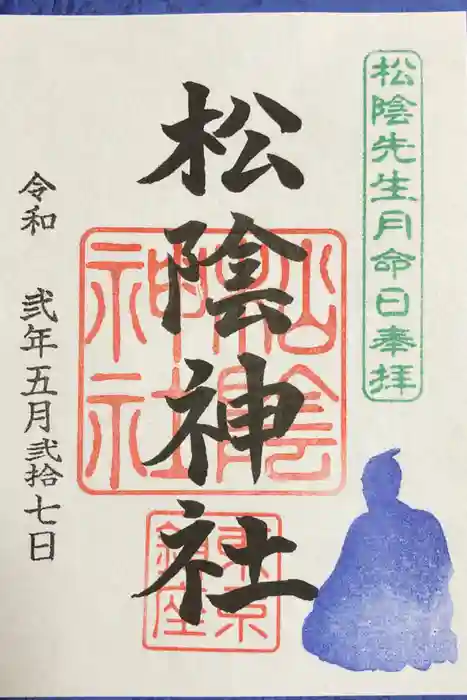 松陰先生月命日奉拝
松陰神社
松陰神社
東京
鎮座
令和 弐年五月弐拾七日